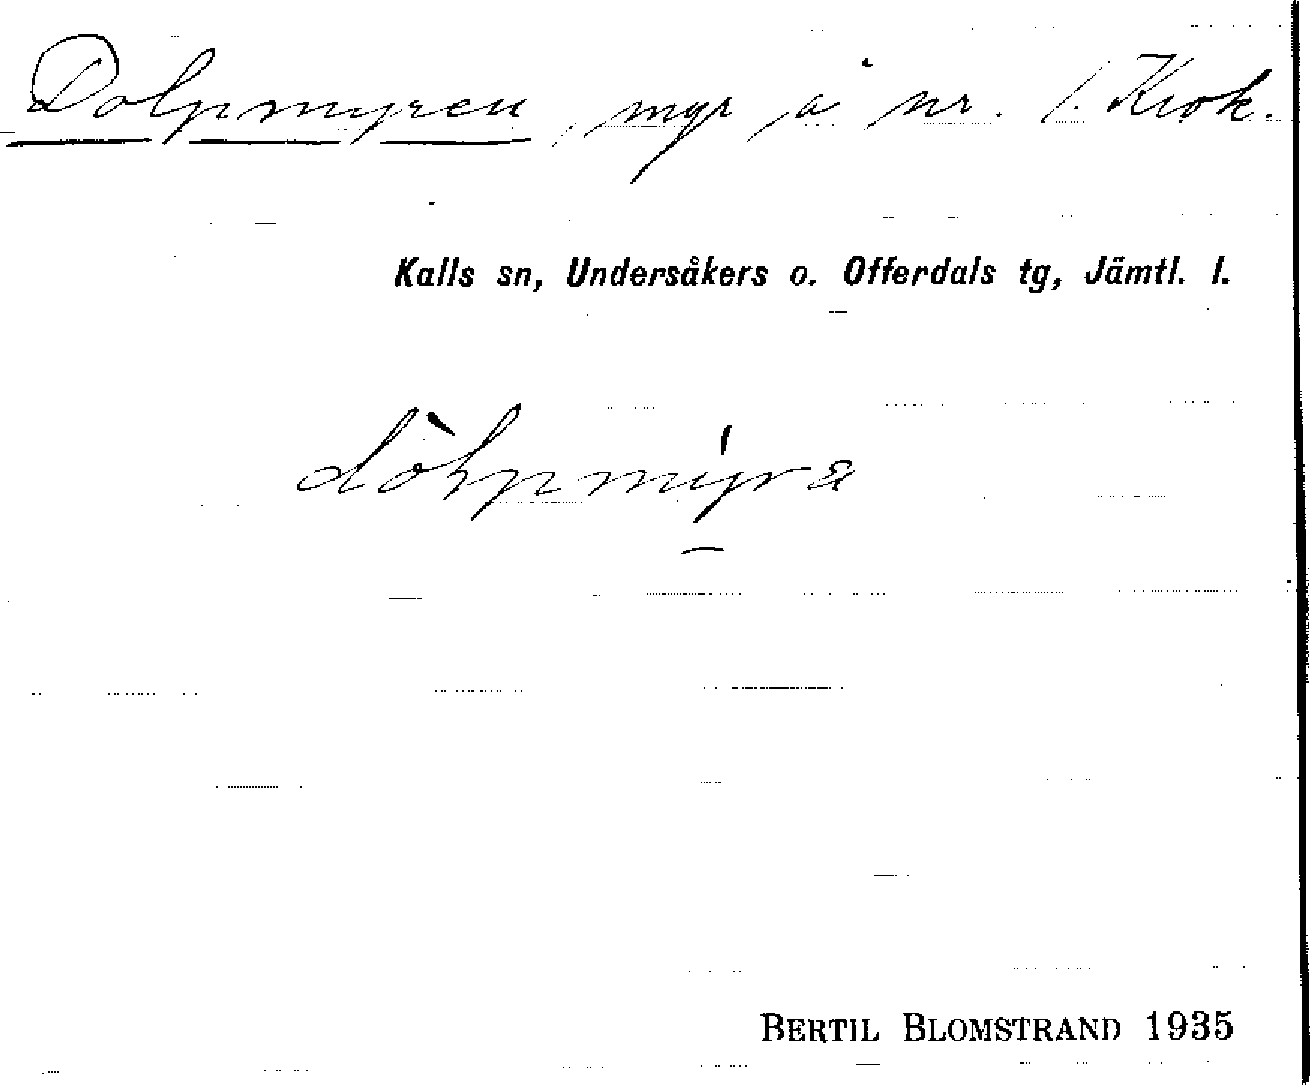 Dolpmyren, myr å nr. 1. Krok.
Kalls sn, Undersåkers o. Offerdals tg, Jämtl. l.
BERTIL BLOMSTRAND 1935